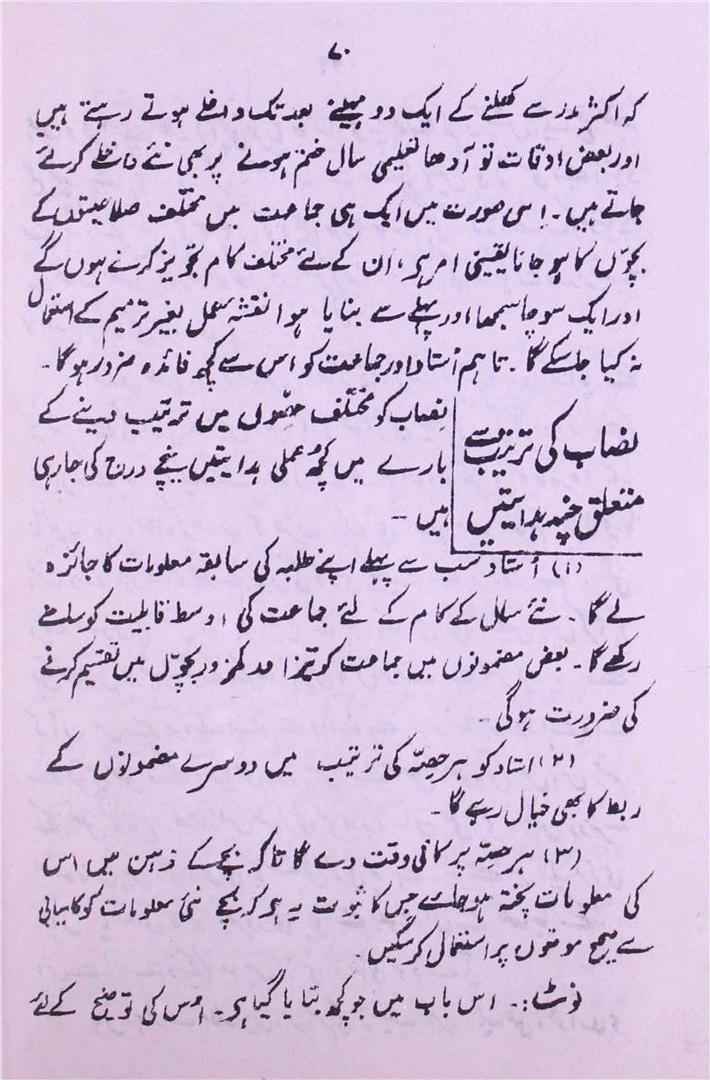 ۷۰
کہ اکثر مدرسے کھلنے کے ایک دو مہینے بعد تک داخلے ہوتے رہتے ہیں
اور بعض اوقات تو آدھا تعلیمی سال ختم ہونے پر بھی نئے داخلے کرلئے
جاتے ہیں۔ اِسی صورت میں ایک ہی جماعت میں مختلف صلاحیتوں کے
بچوّں کا ہو جانا یقینی امر ہی، اُن کے لئے مختلف کام تجویز کرنے ہوں گے
اور ایک سوچا سمجھا اور پہلے سے بنایا ہوا نقشہ مکمل بغیر ترمیم کے استعمال
نہ کیا جا سکے گا۔ تاہم اُستاد اور جماعت کو اس سے کچھ فائدہ ضرور ہوگا۔
نصاب کی ترتیب سے
متعلق چند ہدایتیں
نصاب کو مختلف حصّوں میں ترتیب دینے کے
بارے میں کچھ عملی ہدایتیں نیچے درج کی جا رہی
ہیں ۔
(۱) اُستاد سب سے پہلے اپنے طلبہ کی سابقہ معلومات کا جائزہ
لے گا۔ نئے سال کے کام کے لئے جماعت کی اوسط قابلیت کو سامنے
رکھے گا۔ بعض مضمونوں میں جماعت کو تیز اور کمزور بچوّں میں تقسیم کرنے
کی ضرورت ہوگی ۔
(۲) استاد کو ہر حصّہ کی ترتیب میں دوسرے مضمونوں کے
ربط کا بھی خیال رہے گا۔
(۳) ہر حصّہ پر کافی وقت دے گا تاکہ بچے کے ذہن میں اس
کی معلومات پختہ ہو جائے جس کا ثبوت یہ ہی کہ بچے نئی معلومات کو کامیابی
سے صحیح موقعوں پر استعمال کر سکیں۔
نوٹ:۔ اس باب میں جو کچھ بتایا گیا ہی۔ اُس کی توضیح کے لئے